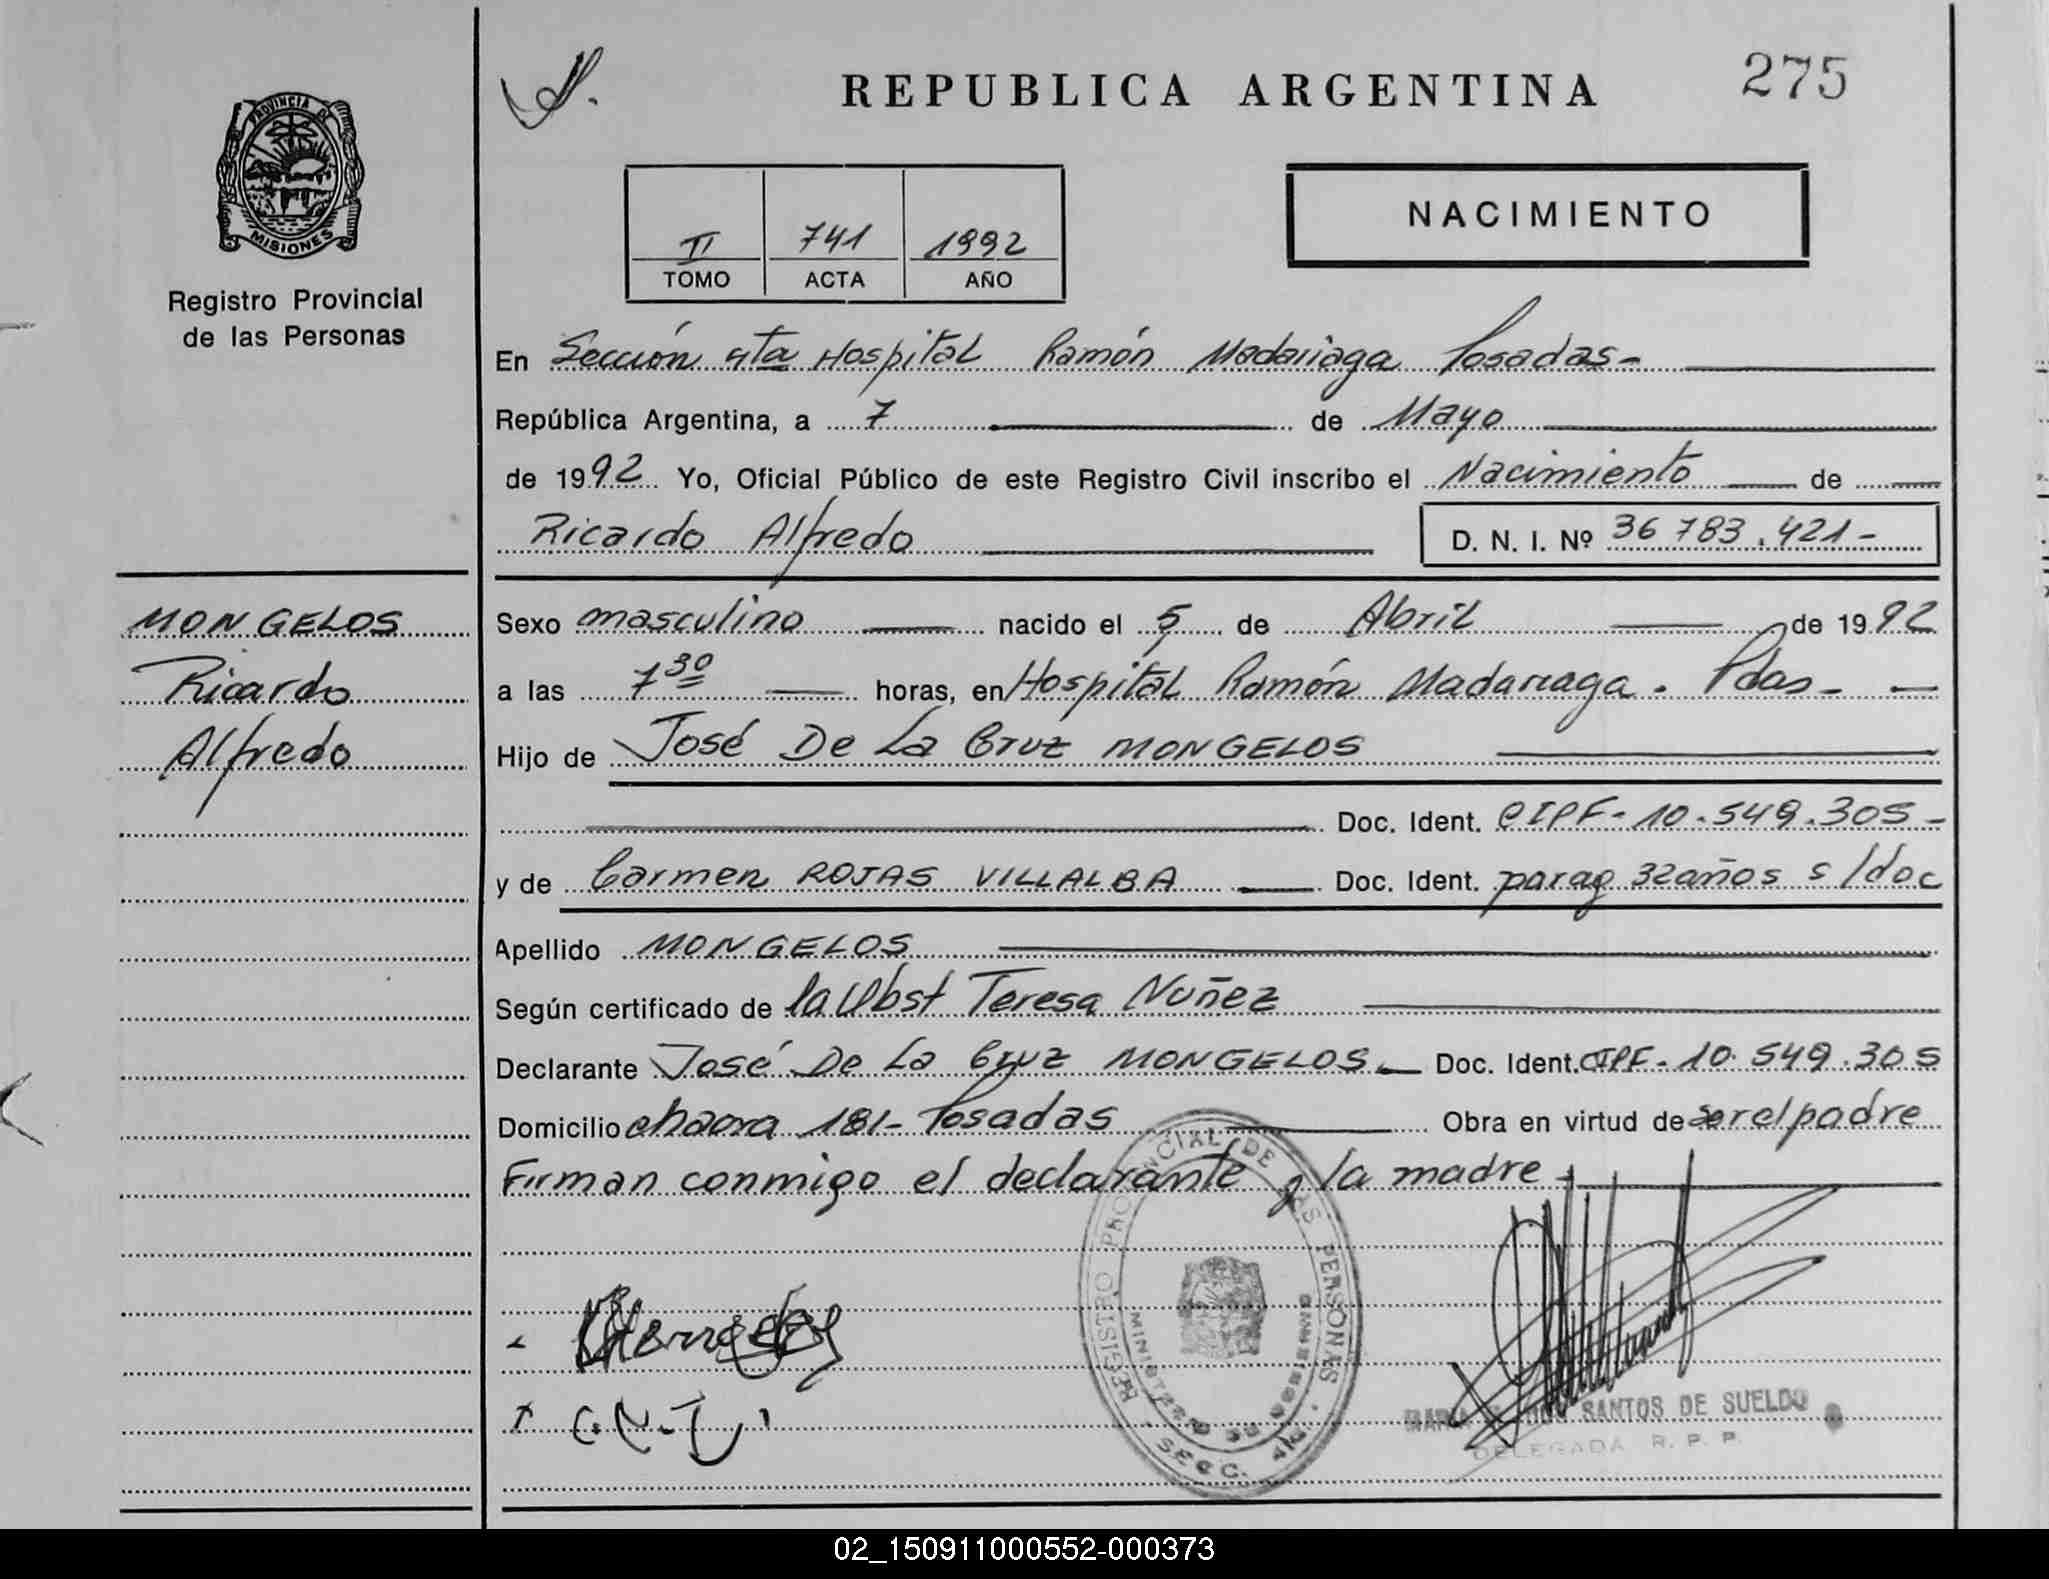 275
REPUBLICA ARGENTINA
PROVINCIA DE
MISIONES
Registro Provincial
de las Personas
NACIMIENTO
II 741 1992
TOMO ACTA AÑO
En Sección 4ta Hospital Ramón Madariaga Posadas-
República Argentina, a 7 de Mayo
de 1992 Yo, Oficial Público de este Registro Civil inscribo el Nacimiento de
Ricardo Alfredo D. N. I. Nº 36 783.421-
MONGELOS
Ricardo
Alfredo
Sexo masculino nacido el 5 de Abril de 1992
a las 7 30 horas, en Hospital Ramón Madariaga. Pdas-
Hijo de José De La Cruz MONGELOS
Doc. Ident. CIPF-10.549.305-
y de Carmen ROJAS VILLALBA Doc. Ident. parag 32años s/doc
Apellido MONGELOS
Según certificado de la Obst Teresa Nuñez
Declarante José De La Cruz MONGELOS Doc. Ident. CIPF-10.549.305
Domicilio chacra 181- Posadas Obra en virtud de ser el padre
Firman conmigo el declarante y la madre-
REGISTRO PROVINCIAL DE LAS PERSONAS
SECC. 4ta.
SANTOS DE SUELDO
DELEGADA R. P. P.
02_150911000552-000373